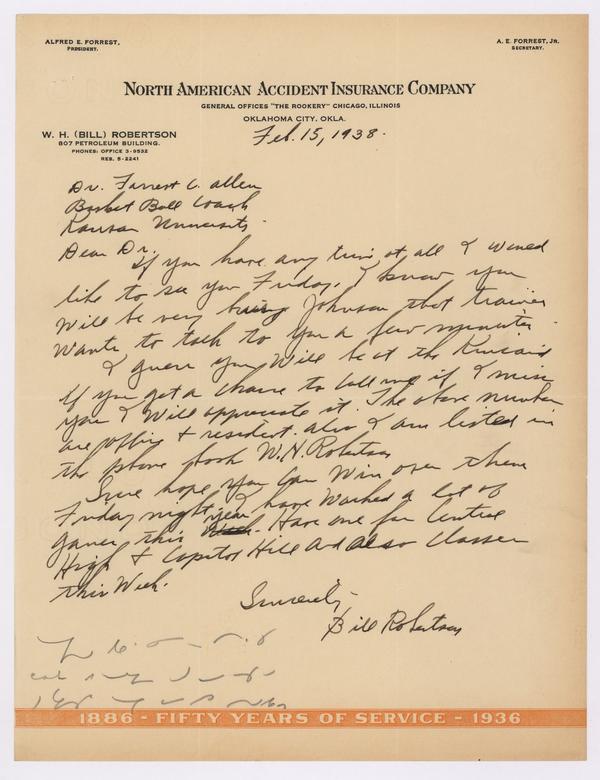 ALFRED E. FORREST,
PRESIDENT.
A. E. FORREST, JR.
SECRETARY.
NORTH AMERICAN ACCIDENT INSURANCE COMPANY
GENERAL OFFICES "THE ROOKERY" CHICAGO, ILLINOIS
OKLAHOMA CITY, OKLA.
W. H. (BILL) ROBERTSON
807 PETROLEUM BUILDING.
PHONES: OFFICE 3-9532
RES. 5-2241
Feb. 15, 1938.
Dr. Forrest C. Allen
Basket Ball Coach
Kansas University.
Dear Dr.
If you have any time at all I would
like to see you Friday. I know you
will be very busy Johnson that trainer
wants to talk to you a few minutes.
I guess you will be at the Kincaid
If you get a chance to call me if I miss
you I will appreciate it. The above number
are office + resident. also I am listed in
the phone book W. H. Robertson
Sure hope you can win over them
Friday night, I have worked a lot of
games this year. Have one for Central
High + Capitol Hill and also Classen
this week.
Sincerely
Bill Robertson
1886 - FIFTY YEARS OF SERVICE - 1936